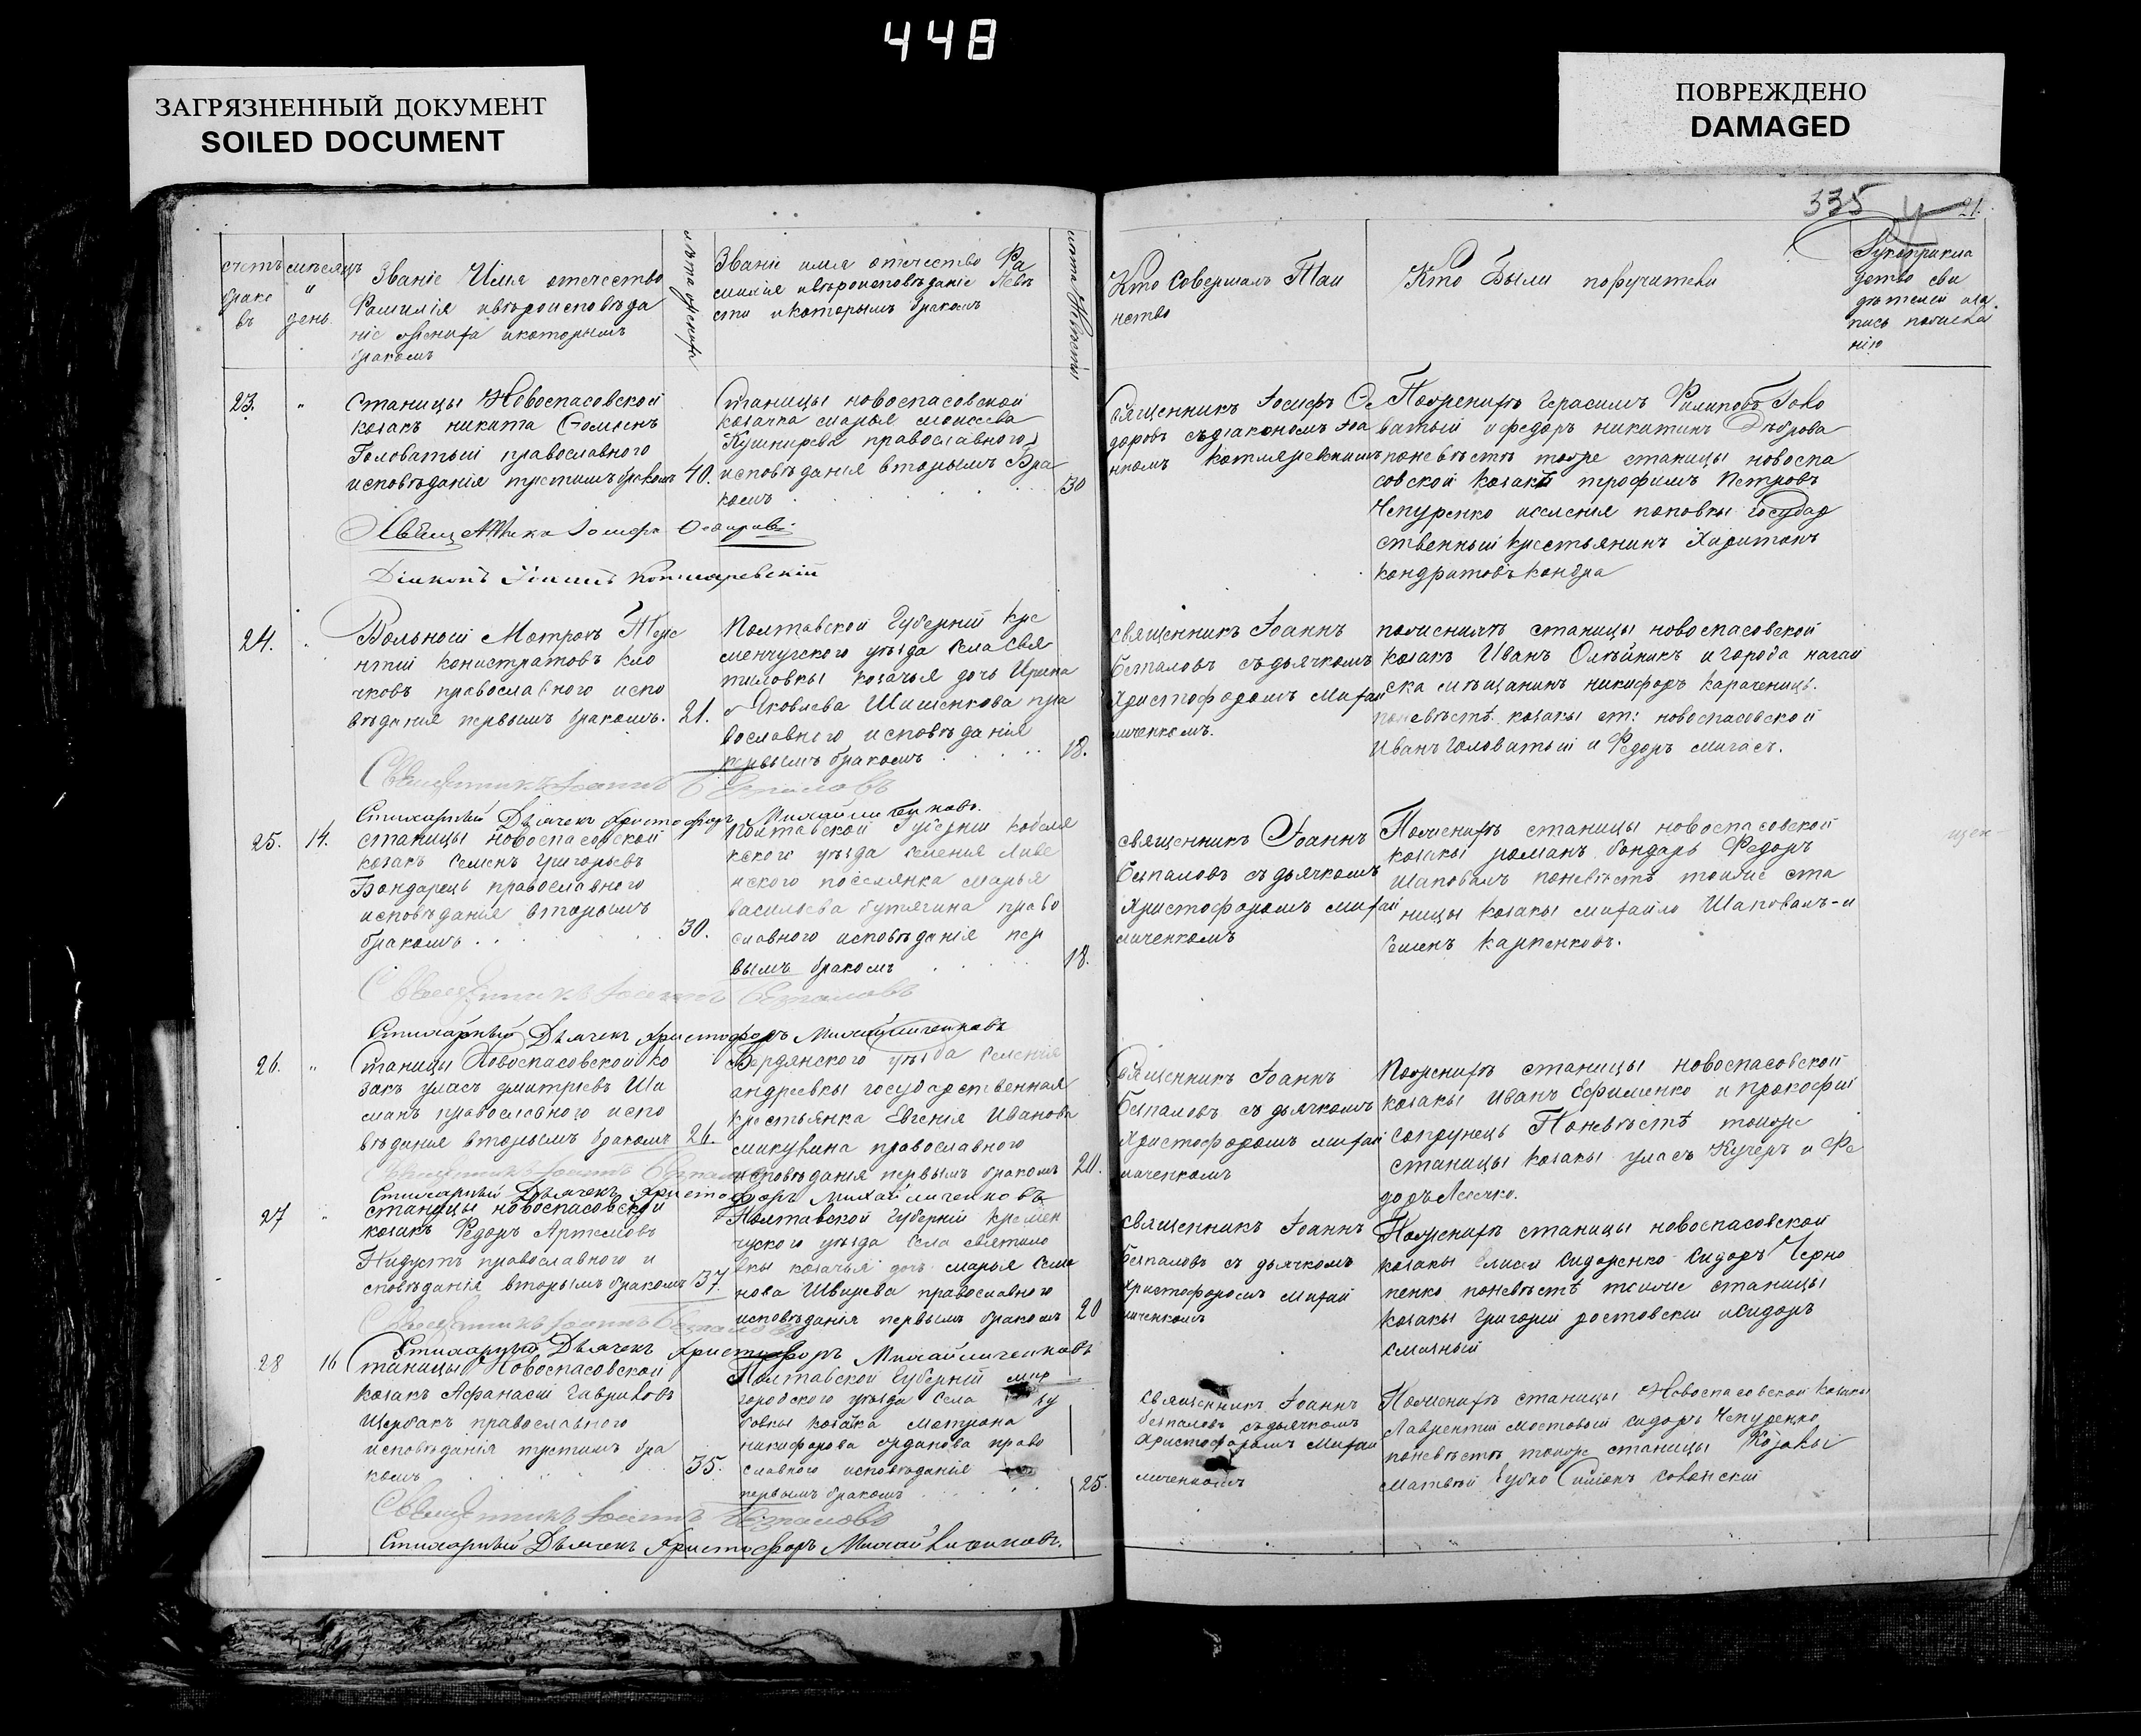 448
ЗАГРЯЗНЕННЫЙ ДОКУМЕНТ
SOILED DOCUMENT
ПОВРЕЖДЕНО
DAMAGED
335
21.
счетъ
браковъ
мѣсяцъ
и
день
Званіе Имя отечество
Фамилія ивѣроисповѣда
ніе жениха икоторымъ
бракомъ
лѣта жениха
Званіе имя отечество Фа
милія ивѣроисповѣданіе Невѣ
сты икоторымъ бракомъ
лѣта Невѣсты
Кто Совершалъ Таи
нство
Кто Были поручители
Рукоприкла
дство сви
дѣтелей
23.
станицы Новоспасовской
козакъ никита Фоминъ
Головатый православного
исповѣданія третимъ бракомъ
40.
станицы новоспасовской
козачка марья моисеева
Кушнирева православного
исповѣданія вторымъ Бра
комъ
30
священникъ Іосифъ Фе
доровъ съдіакономъ Іоа
нномъ котляревскимъ
Поженихѣ Герасимъ Филиповъ Голо
ватый ифедоръ никитинъ Дѣброва
поневѣстѣ тоже станицы новоспа
совской козакъ трофимъ Петровъ
Чепуренко иселенія поповки Государ
ственный крестьянинъ Харитонъ
кондратовъ кондра
Діаконъ Іоаннъ Котляревскій
24.
Вольной Матрозъ Тере
нтій конистратовъ Кло
чковъ православного испо
вѣданія первымъ бракомъ.
21.
Полтавской Губерніи кре
менчугского уѣзда села свя
тиловки козачья дочь Ирина
Яковлева Шишенкова пра
вославного исповѣданія
первымъ бракомъ
18.
священникъ Іоаннъ
Безпаловъ съдьячкомъ
Христофоромъ михай
личенкомъ.
поженихѣ станицы новоспасовской
козакъ Иванъ Олѣйникъ игорода нагай
ска мѣщанинъ никифоръ карабеницъ.
поневѣстѣ козаки ст: новоспасовской
Иванъ головатый и Федоръ мигаль.
Священникъ Іоаннъ Безпаловъ
Стихарный Дьячекъ Христофоръ Михайличенковъ.
25.
14.
станицы новоспасовской
козакъ семенъ григорьевъ
Бондарець православного
исповѣданія вторымъ
бракомъ
30.
Полтавской Губерніи кобеля
кского уѣзда селенія Ливе
нского поселянка марья
васильева бутягина право
славного исповѣданія пер
вымъ бракомъ
18.
священникъ Іоаннъ
Безпаловъ съдьячкомъ
Христофоромъ михай
личенкомъ
Поженихѣ станицы новоспасовской
козаки романъ бондарь Федоръ
шаповалъ поневѣстѣ тоиже ста
ницы козаки михайло Шаповалъ и
семенъ карпенковъ.
Священникъ Іоаннъ Безпаловъ
Стихарный Дьячекъ Христофоръ Михайличенковъ
26.
станицы Новоспасовской ко
закъ уласъ дмитріевъ Ша
манъ православного испо
вѣданія вторымъ бракомъ
26.
Бердянского уѣзда селенія
андреевки государственная
крестьянка Евгенія Иванова
микулина православного
исповѣданія первымъ бракомъ
20.
священникъ Іоаннъ
Безпаловъ съ дьячкомъ
Христофоромъ михай
личенкомъ
Поженихѣ станицы новоспасовской
козаки Иванъ Ефименко и прокофій
сопрунець Поневѣстѣ тоиже
станицы козаки уласъ Кучеръ и Фе
доръ Лелечко.
Священникъ Іоаннъ Безпаловъ
Стихарный Дьячекъ Христофоръ Михайличенковъ
27
станицы новоспасовской
козакъ Федоръ Артемовъ
православного и
сповѣданія вторымъ бракомъ
37.
Полтавской Губерніи кремен
чуского уѣзда села святило
вки козачья дочь марья семе
нова Швырева православного
исповѣданія первымъ бракомъ
20
священникъ Іоаннъ
Безпаловъ съ дьячкомъ
Христофоромъ михай
личенкомъ
Поженихѣ станицы новоспасовской
козаки елисей сидоренко сидоръ Черно
пенко поневѣстѣ тоиже станицы
козаки григорій ростовскій исидоръ
смачный
Священникъ Іоаннъ Безпаловъ
Стихарный Дьячекъ Христофоръ Михайличенковъ
28
16
станицы Новоспасовской
козакъ Афанасій гавриловъ
Щербакъ православного
исповѣданія третимъ бра
комъ
35.
Полтавской Губерніи мир
городского уѣзда села
бовки козачка матрона
никифорова право
славного исповѣданія
первымъ бракомъ
25.
священникъ Іоаннъ
безпаловъ съдьячкомъ
Христофоромъ Михаи
личенкомъ
Поженихѣ станицы Новоспасовской козаки
Лаврентій мостовый сидоръ Чепуренко
поневѣстѣ тоиже станицы Козаки
матвѣй зубко Симонъ
Священникъ Іоаннъ Безпаловъ
Стихарный Дьячекъ Христофоръ Михайличенковъ.